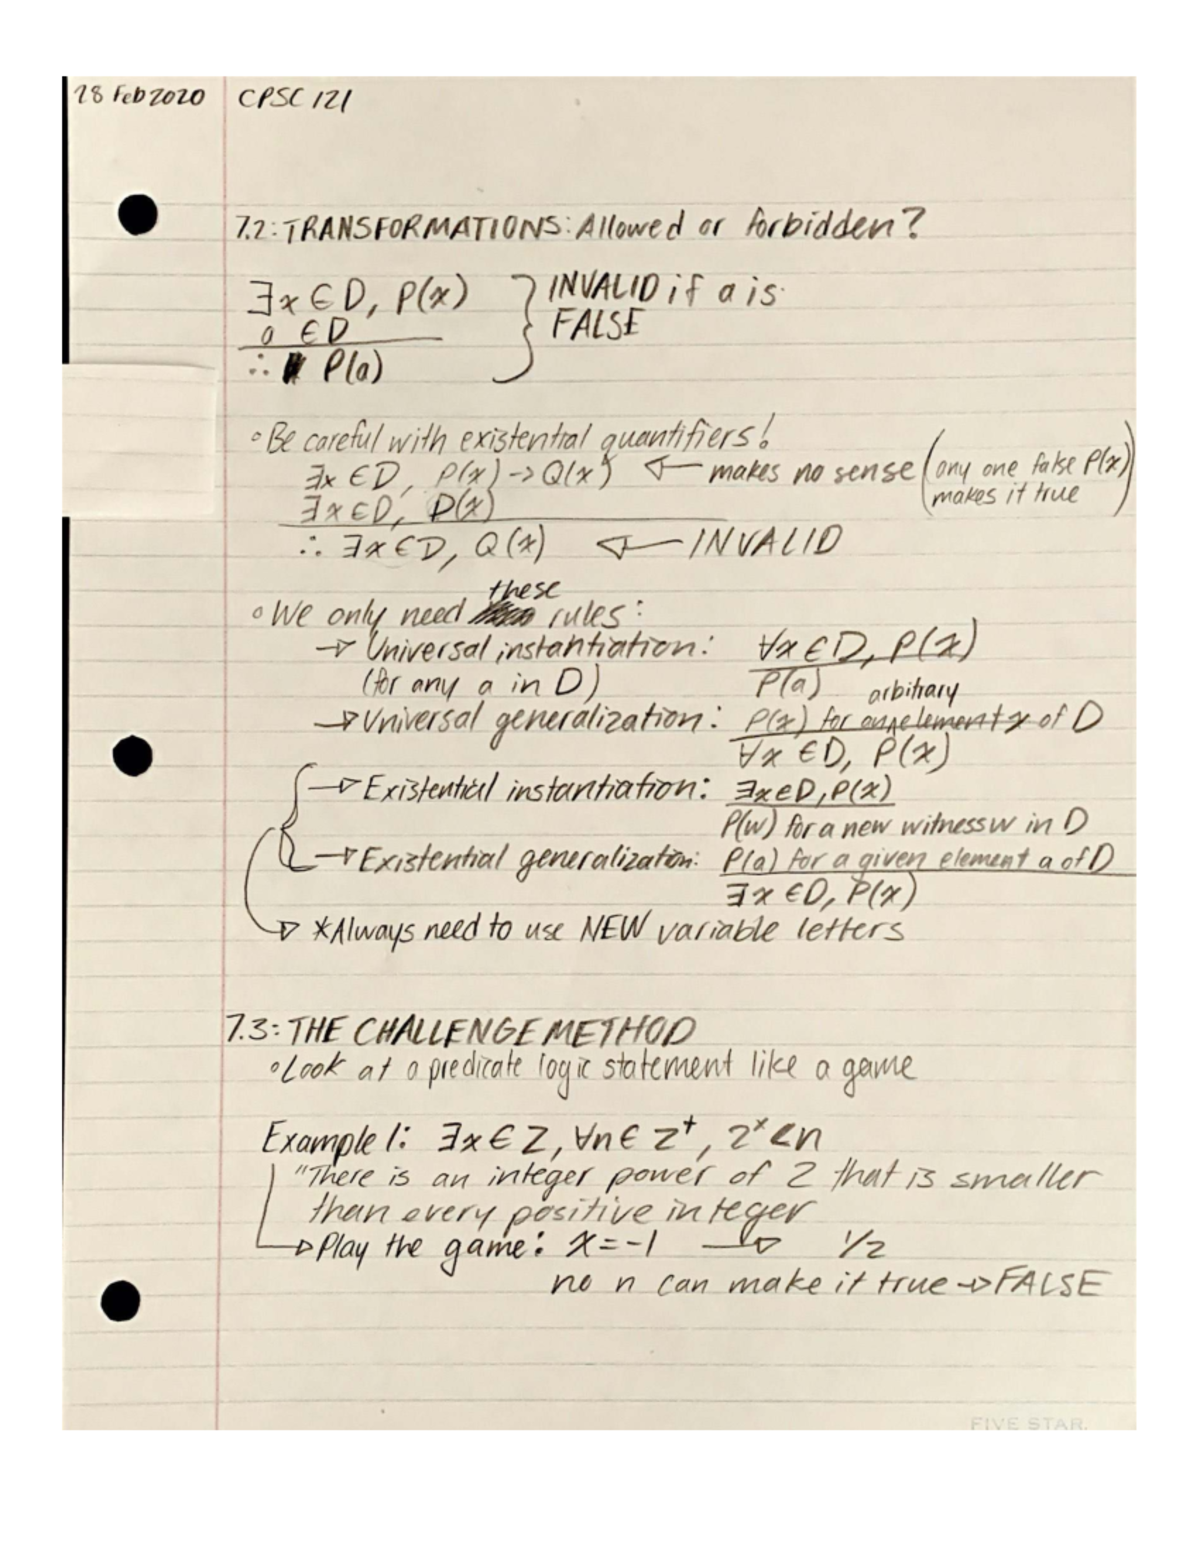 28 Feb 2020 CPSC 121
7.2: TRANSFORMATIONS: Allowed or forbidden?
∃x ∈ D, P(x) } INVALID if a is
a ∈ D FALSE
∴ P(a)
◦ Be careful with existential quantifiers!
∃x ∈ D, P(x) -> Q(x) ← makes no sense (any one false P(x)
∃x ∈ D, P(x) makes it true)
∴ ∃x ∈ D, Q(x) ← INVALID
these
◦ We only need rules:
→ Universal instantiation: ∀x ∈ D, P(x)
(for any a in D) P(a) arbitrary
→ Universal generalization: P(x) for any element x of D
∀x ∈ D, P(x)
→ Existential instantiation: ∃x ∈ D, P(x)
P(w) for a new witness w in D
→ Existential generalization: P(a) for a given element a of D
∃x ∈ D, P(x)
→ *Always need to use NEW variable letters
7.3: THE CHALLENGE METHOD
◦ Look at a predicate logic statement like a game
Example 1: ∃x ∈ Z, ∀n ∈ Z⁺, 2ˣ < n
"There is an integer power of 2 that is smaller
than every positive integer
→ Play the game: x = -1 → 1/2
no n can make it true → FALSE
FIVE STAR.